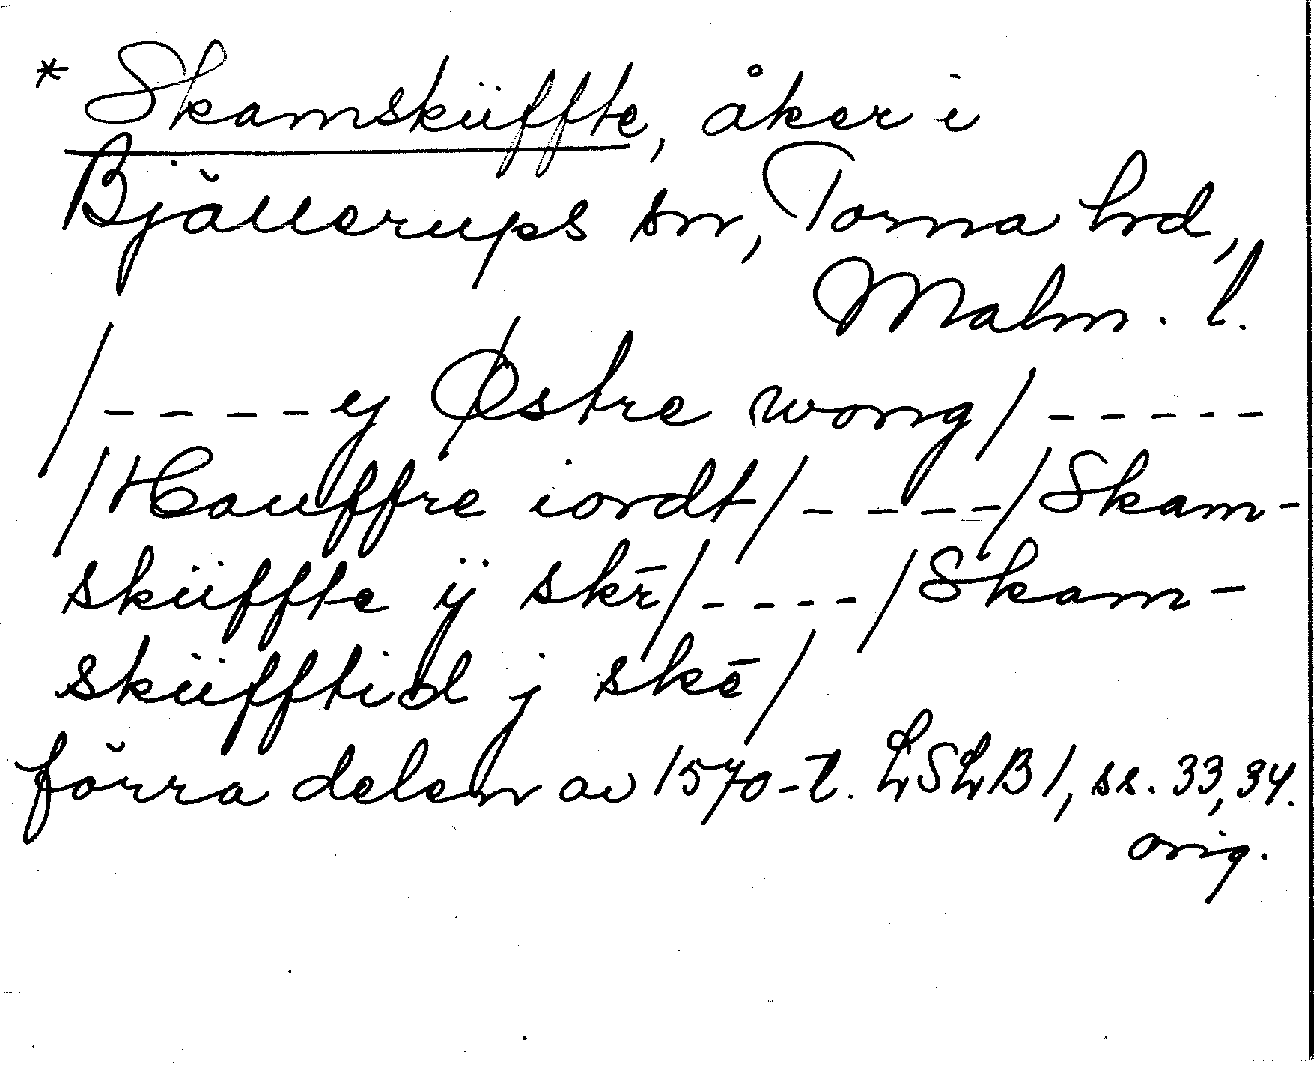 * Skamsküffte, åker i
Bjällerups sn, Torna hd,
Malm. l.
/----y Østre wong/-----
/Hauffre iordt/----/Skam-
sküffte ÿ skē/----/Skam-
sküfftid j skē/
förra delen av 1570-t. LSLB 1, ss. 33, 34.
orig.